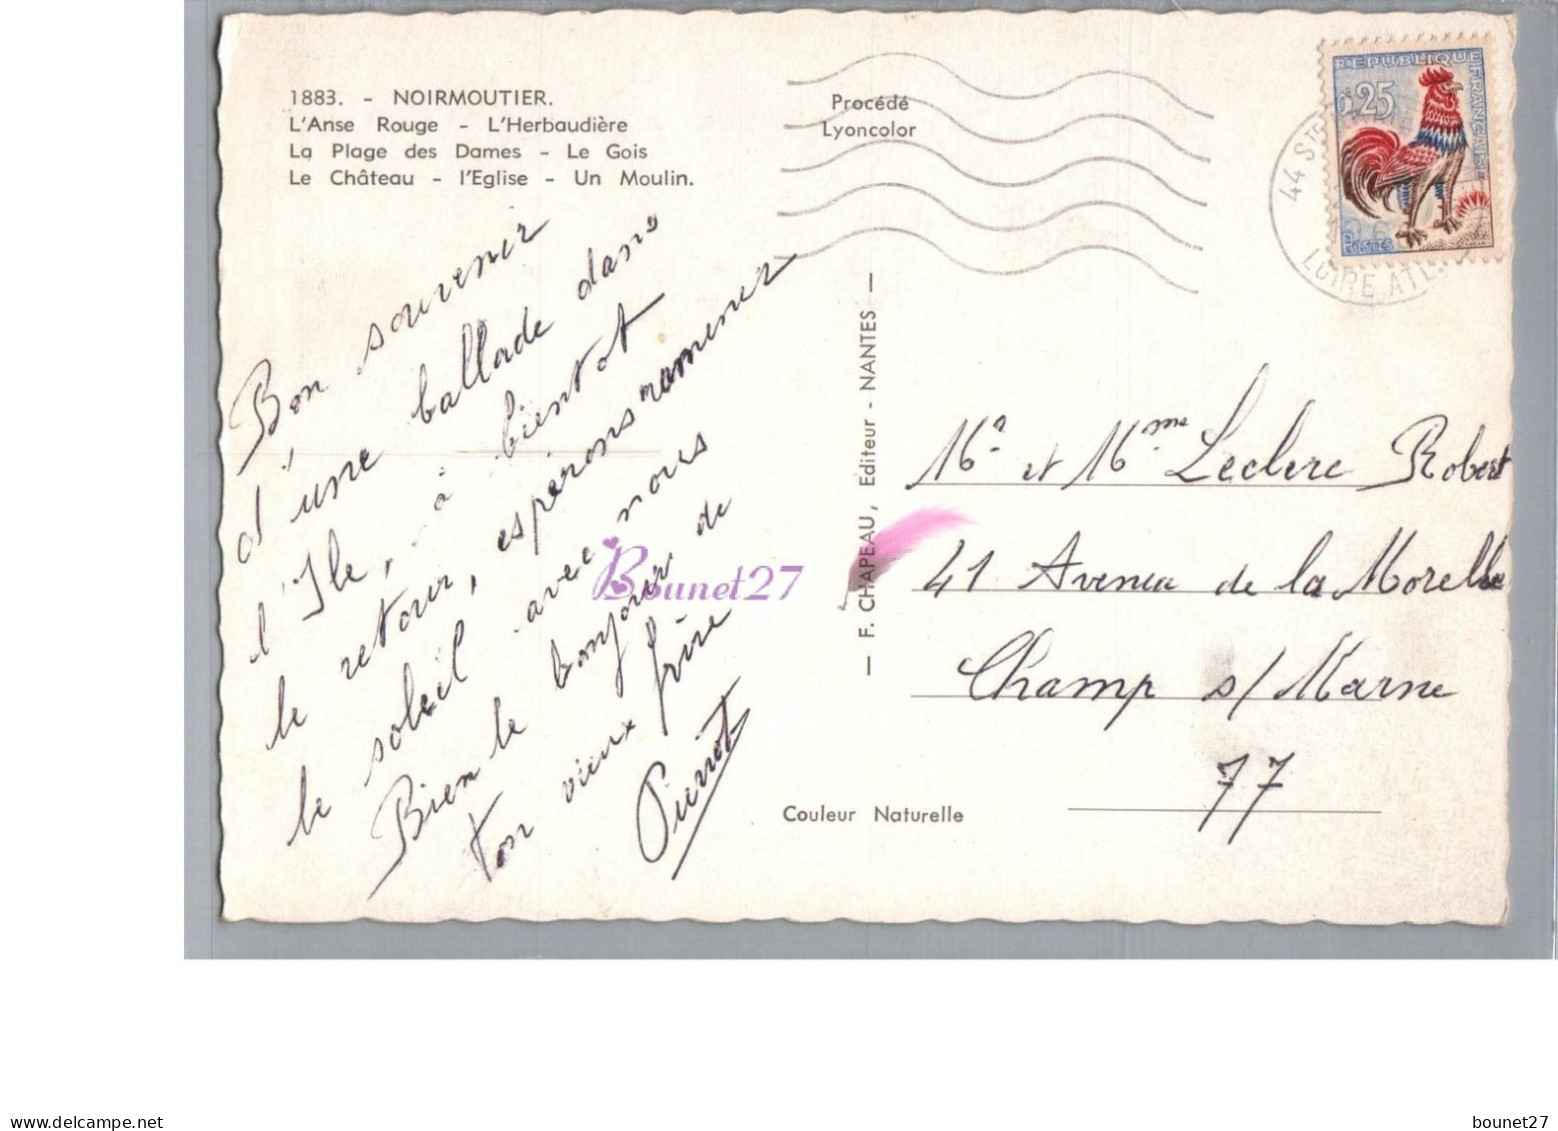 1883. - NOIRMOUTIER.
L'Anse Rouge - L'Herbaudière
La Plage des Dames - Le Gois
Le Château - l'Eglise - Un Moulin.
Procédé
Lyoncolor
REPUBLIQUE FRANÇAISE
0,25
POSTES
44 ST
LOIRE ATL
Bon souvenir
d'une ballade dans
l'Ile, à bientot
le retour, espérons ramener
le soleil avec nous
Bien le bonjour de
ton vieux frère
Pierrot
— F. CHAPEAU, Editeur - NANTES —
Mr et Mme Leclerc Robert
41 Avenue de la Morelle
Champ s/ Marne
77
Couleur Naturelle
Bounet27
delcampe.net
bounet27